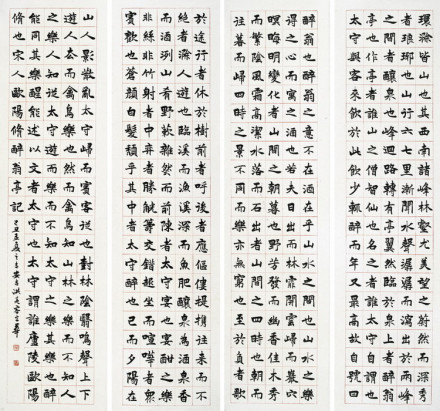 環滁皆山也其西南諸峰林壑尤美望之蔚然而深秀
者瑯琊也山行六七里漸聞水聲潺潺而瀉出于兩峰
之間者釀泉也峰迴路轉有亭翼然臨于泉上者醉翁
亭也作亭者誰山之僧智仙也名之者誰太守自謂也
太守與客來飲於此飲少輒醉而年又最高故自號曰
醉翁也醉翁之意不在酒在乎山水之間也山水之樂
得之心而寓之酒也若夫日出而林霏開雲歸而巖穴
暝晦明變化者山間之朝暮也野芳發而幽香佳木秀
而繁陰風霜高潔水落而石出者山間之四時也朝而
往暮而歸四時之景不同而樂亦無窮也至於負者歌
於途行者休於樹前者呼後者應傴僂提攜往來而不
絕者滁人遊也臨溪而漁溪深而魚肥釀泉為酒泉香
而酒洌山肴野蔌雜然而前陳者太守宴也宴酣之樂
非絲非竹射者中弈者勝觥籌交錯起坐而喧嘩者眾
賓歡也蒼顏白髮頹乎其中者太守醉也已而夕陽在
山人影散亂太守歸而賓客從也樹林陰翳鳴聲上下
遊人去而禽鳥樂也然而禽鳥知山林之樂而不知人
之樂人知從太守遊而樂而不知太守之樂其樂也醉
能同其樂醒能述以文者太守也太守謂誰廬陵歐陽
脩也宋人歐陽脩醉翁亭記